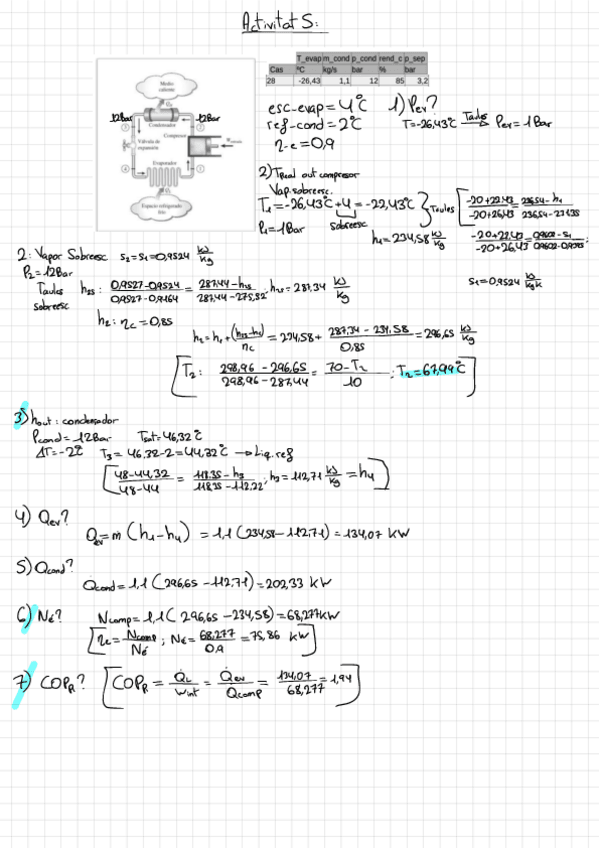 Activitat 5:
T_evap m_cond p_cond rend_c p_sep
Cas ºC kg/s bar % bar
28 -26,43 1,1 12 85 3,2
Medio caliente
12Bar 12Bar
Condensador
Compresor
Válvula de expansión
Evaporador
Espacio refrigerado frío
esc-evap = 4ºC
ref-cond = 2ºC
η-e = 0,9
1) Pev?
T=-26,43ºC Taules → Pev = 1Bar
2) Treal out compresor
Vap. sobreesc.
T1 = -26,43ºC + 4 = -22,43ºC } Taules
sobreesc
P1 = 1Bar
h1 = 234,58 kJ/kg
s1 = 0,9524 kJ/kgK
2: Vapor Sobreesc s2 = s1 = 0,9524 kJ/kg
P2 = 12Bar
Taules sobreesc
h2s: (0,9527 - 0,9524)/(0,9527 - 0,9164) = (287,44 - h2s)/(287,44 - 275,52); h2s = 287,34 kJ/kg
h2: ηc = 0,85
h2 = h1 + (h2s-h1)/ηc = 234,58 + (287,34 - 234,58)/0,85 = 296,65 kJ/kg
[T2: (298,96 - 296,65)/(298,96 - 287,44) = (70 - T2)/10; T2 = 67,99ºC]
3) hout: condensador
Pcond = 12Bar Tsat = 46,32ºC
ΔT = -2ºC T3 = 46,32 - 2 = 44,32ºC → Liq. ref
[(48 - 44,32)/(48 - 44) = (118,35 - h3)/(118,35 - 112,22); h3 = 112,71 kJ/kg = h4]
4) Qev?
Qev = ṁ (h1 - h4) = 1,1 (234,58 - 112,71) = 134,07 kW
5) Qcond?
Qcond = 1,1 (296,65 - 112,71) = 202,33 kW
6) Né? Ncomp = 1,1 (296,65 - 234,58) = 68,277 kW
[ηe = Ncomp/Né; Né = 68,277/0,9 = 75,86 kW]
7) COPR? [COPR = Q̇L/Wint = Q̇ev/Qcomp = 134,07/68,277 = 1,94]